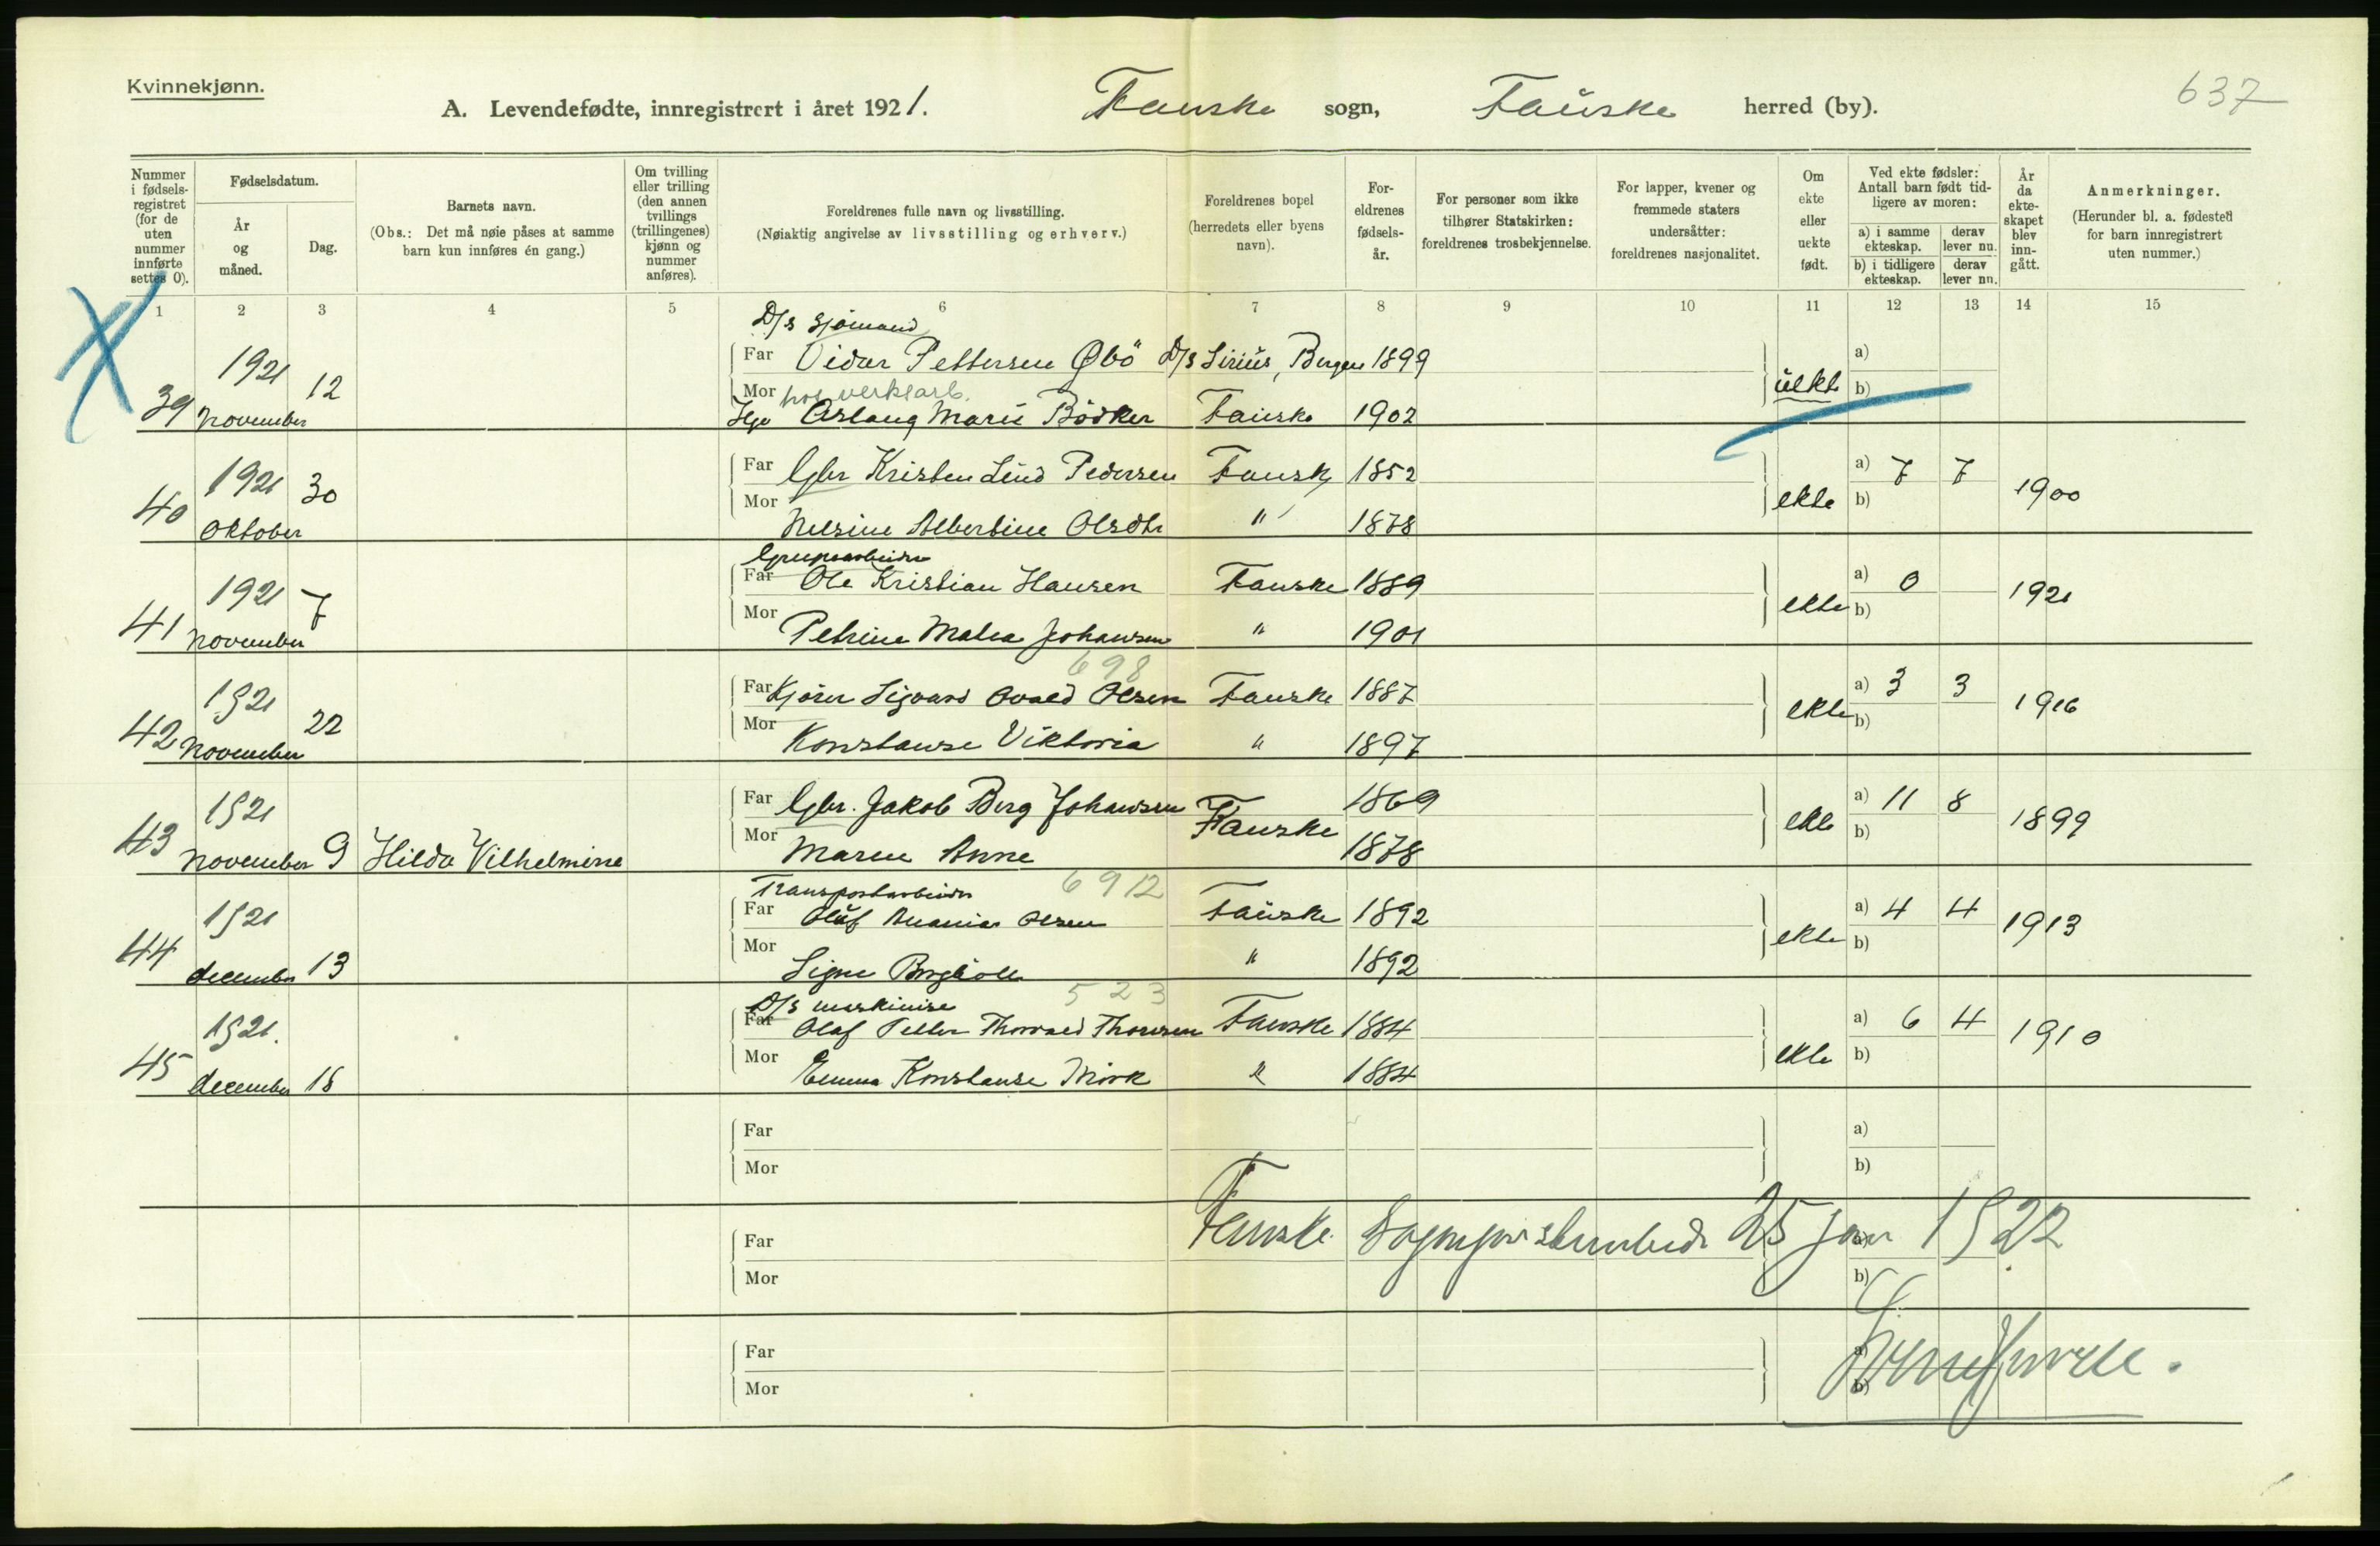 Kvinnekjønn.
A. Levendefødte, innregistrert i året 1921. Fauske sogn, Fauske herred (by).
637
Nummer i fødselsregistret (for de uten nummer innførte settes 0).
Fødselsdatum.
År og måned.
Dag.
Barnets navn.
(Obs.: Det må nøie påses at samme barn kun innføres én gang.)
Om tvilling eller trilling (den annen tvillings (trillingenes) kjønn og nummer anføres).
Foreldrenes fulle navn og livsstilling.
(Nøiaktig angivelse av livsstilling og erhverv.)
Foreldrenes bopel (herredets eller byens navn).
Foreldrenes fødselsår.
For personer som ikke tilhører Statskirken: foreldrenes trosbekjennelse.
For lapper, kvener og fremmede staters undersåtter: foreldrenes nasjonalitet.
Om ekte eller uekte født.
Ved ekte fødsler: Antall barn født tidligere av moren:
a) i samme ekteskap. derav lever nu.
b) i tidligere ekteskap. derav lever nu.
År da ekteskapet blev inngått.
Anmerkninger.
(Herunder bl. a. fødested for barn innregistrert uten nummer.)
1 2 3 4 5 6 7 8 9 10 11 12 13 14 15
D/s Sjömand
1921 12 Far Vidar Pettersen Øbö D/s Sirius, Bergen 1899 a)
Mor uekte b)
39 november Aslaug Marie Bödker Fauske 1902
1921 30 Far Gbr Kristen Lund Pedersen Fauske 1852 a) 7 7 1900
Mor ekte b)
40 Oktober Nelsine Albertine Olsdtr " 1878
Grubearbeider
1921 7 Far Ole Kristian Hansen Fauske 1889 a) 0 1921
Mor ekte b)
41 november Petrine Malea Johansen " 1901
698
1921 22 Far Kjörer Sigvard Ovald Olsen Fauske 1887 a) 3 3 1916
Mor ekte b)
42 november Konstanse Viktoria " 1897
1921 Far Gbr. Jakob Berg Johansen Fauske 1869 a) 11 8 1899
Mor ekte b)
43 november 9 Hilda Vilhelmine Maren Anne 1878
Transportarbeider 6912
1921 Far Oluf Ananias Olsen Fauske 1892 a) 4 4 1913
Mor ekte b)
44 december 13 Signe " 1892
D/s maskinist 523
1921. Far Olaf Petter Thorvald Thoresen Fauske 1884 a) 6 4 1910
Mor ekte b)
45 december 18 Emma Konstanse Mörk " 1884
Far a)
Mor b)
Fauske Sogneprestembede 25 jan 1922
Far
Mor b)
Far a)
Mor b)